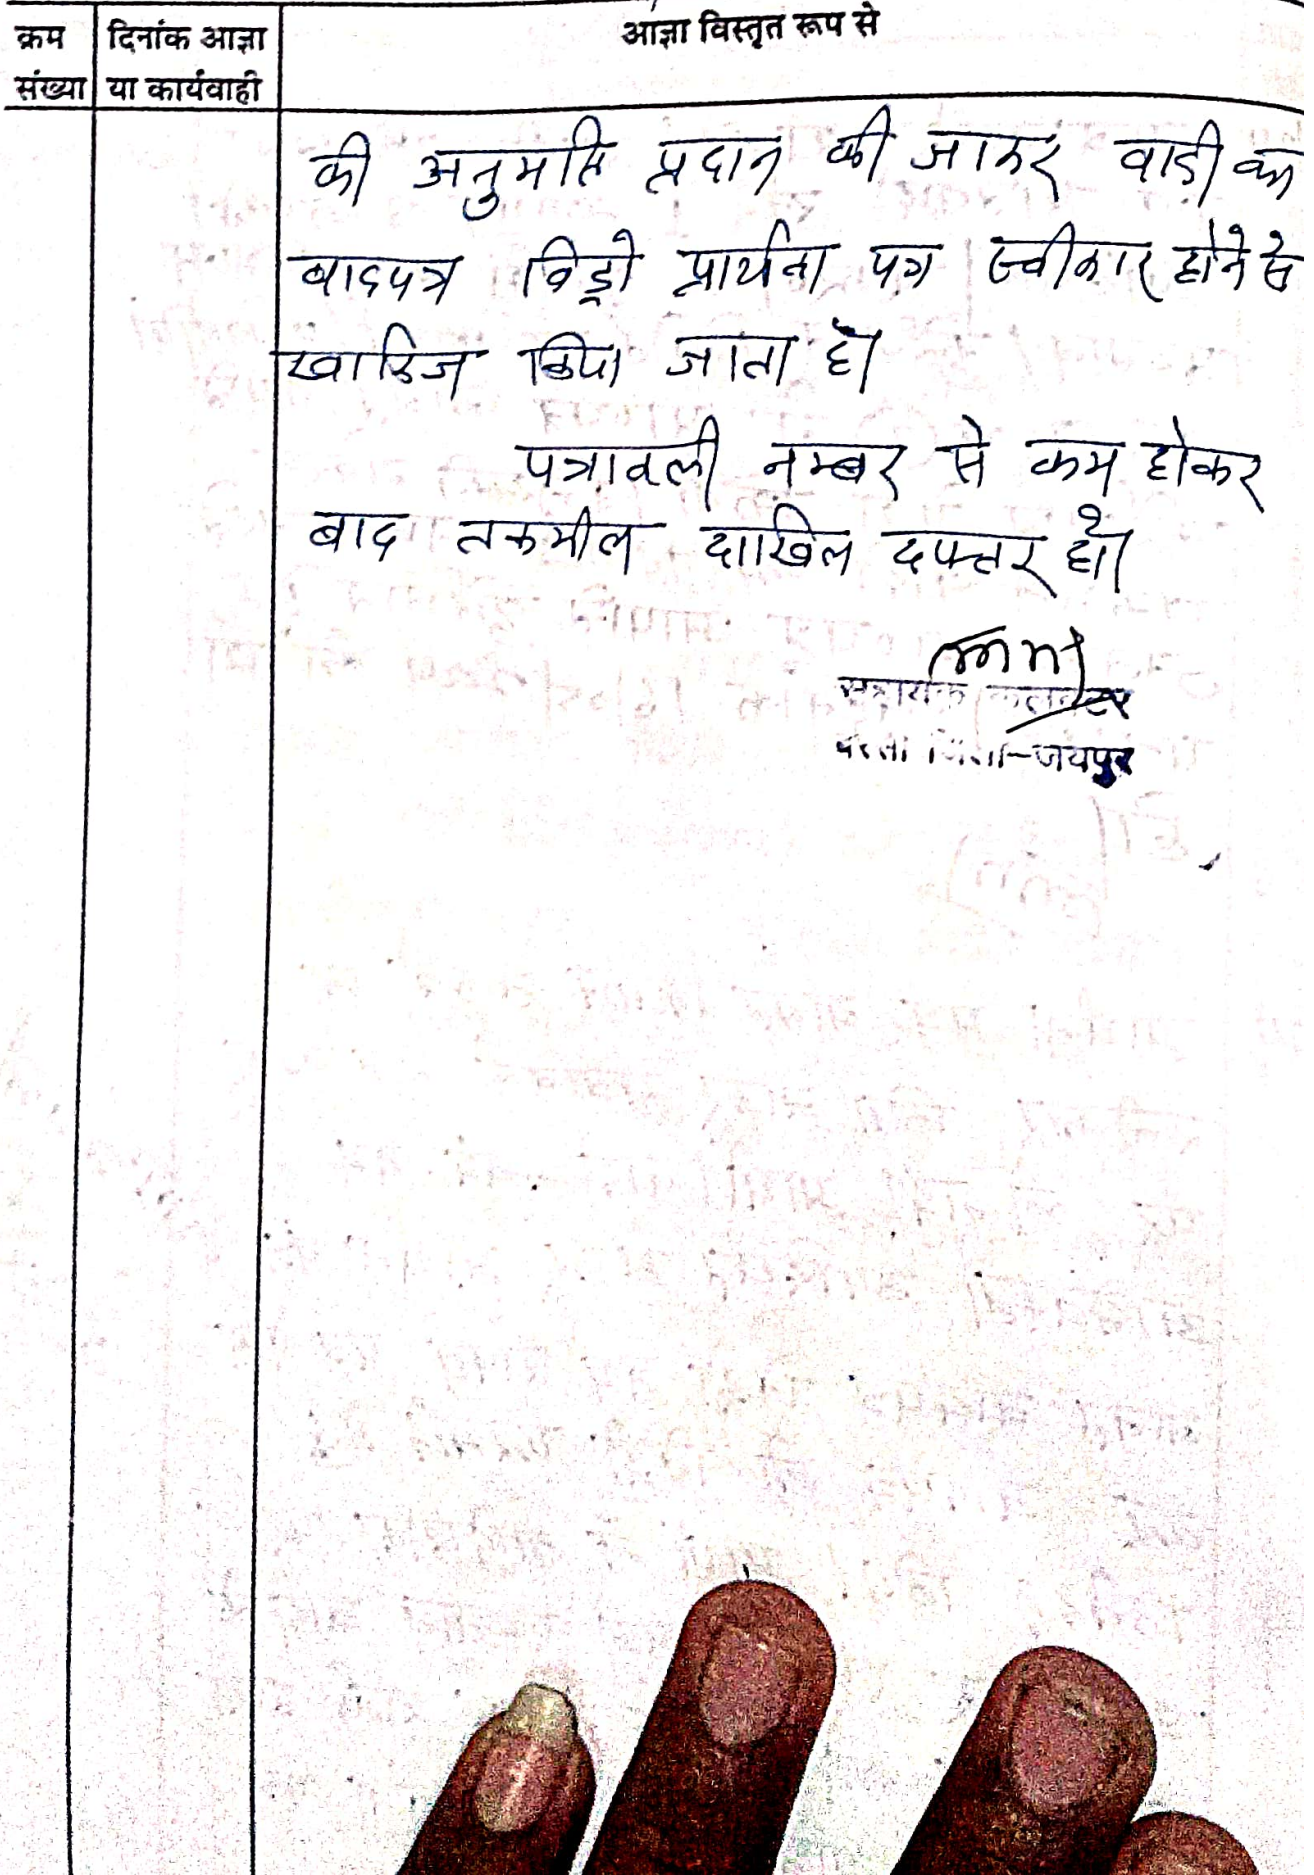 क्रम दिनांक आज्ञा आज्ञा विस्तृत रूप से
संख्या या कार्यवाही
की अनुमति प्रदान की जाकर वादी का
वादपत्र विड्रो प्रार्थना पत्र स्वीकार होने से
खारिज किया जाता है।
पत्रावली नम्बर से कम होकर
बाद तकमील दाखिल दफ्तर हो।
सहायक कलक्टर
जिला-जयपुर